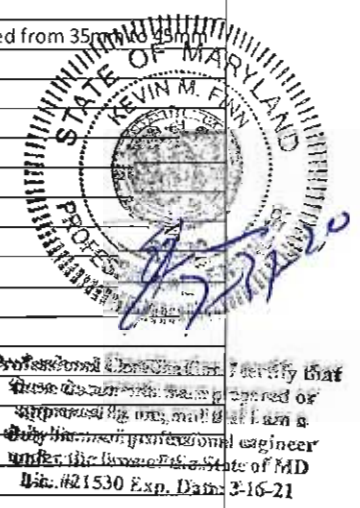 ed from 35mm to 45mm
STATE OF MARYLAND
KEVIN M. FINN
Professional Certification. I certify that
these documents were prepared or
approved by me, and that I am a
duly licensed professional engineer
under the laws of the State of MD
Lic. #21530 Exp. Date: 3-16-21